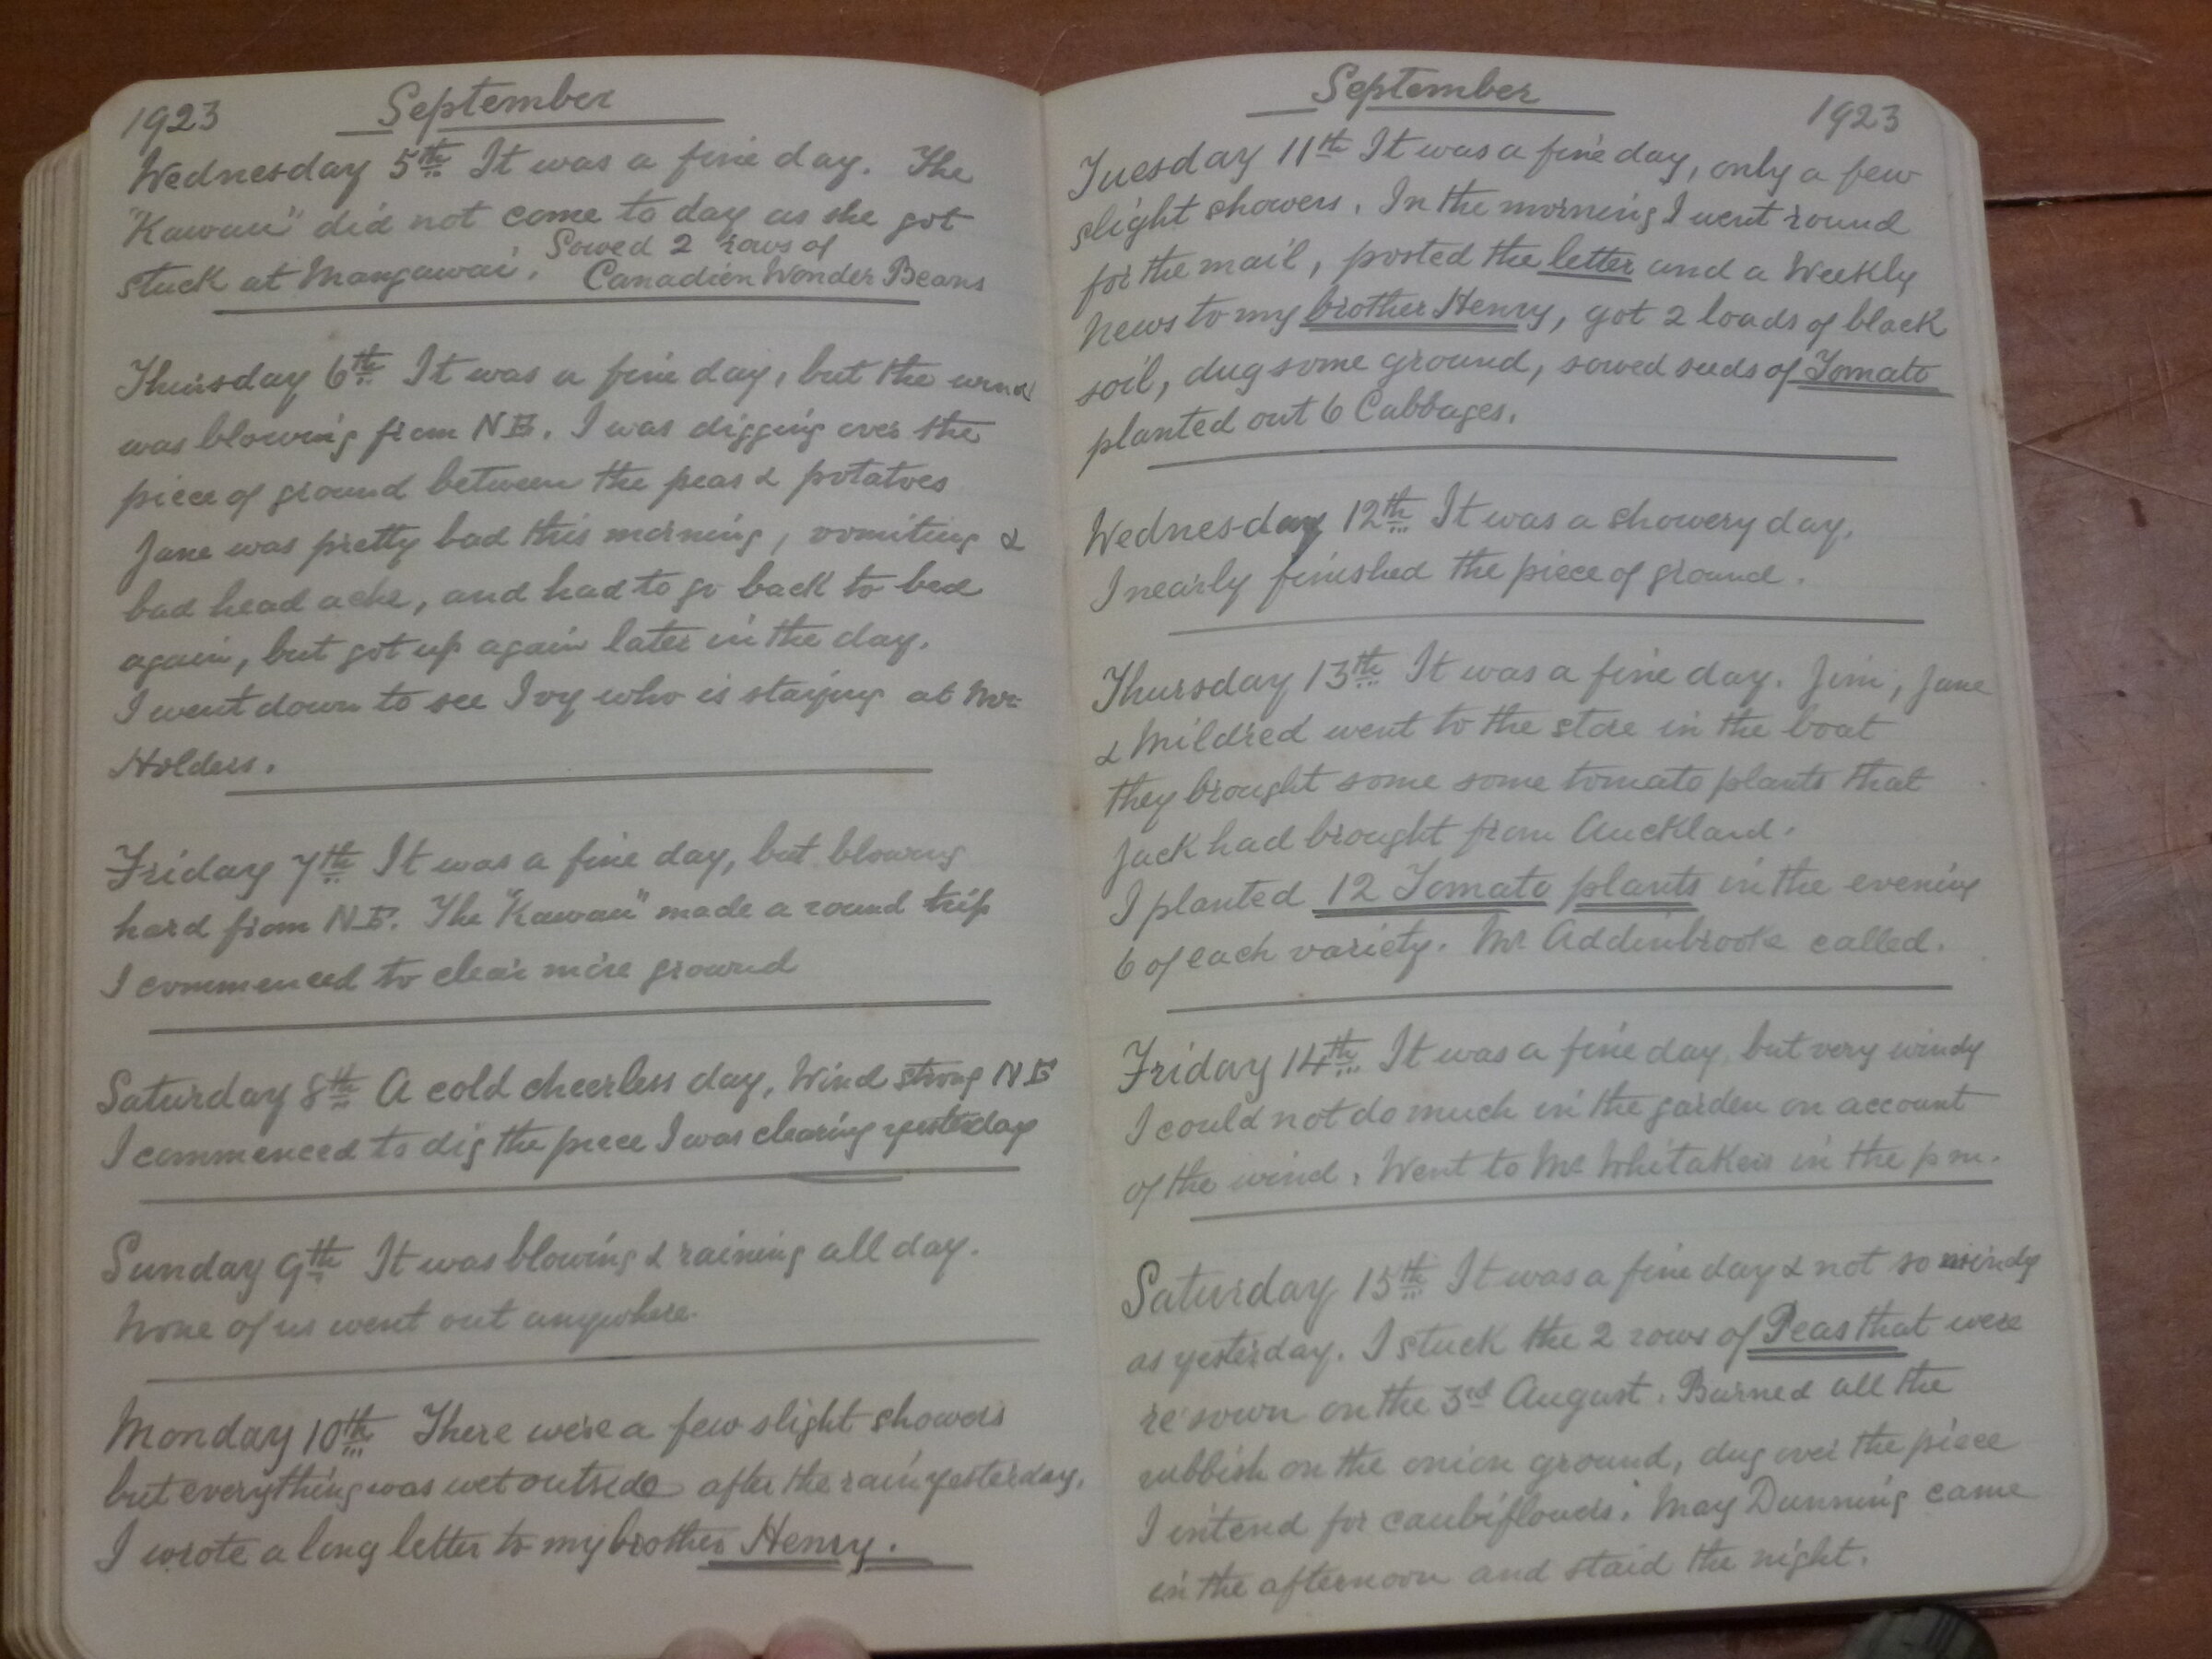 1923 September
Wednesday 5th It was a fine day. The
"Kawau" did not come to day as she got
stuck at Mangawai. Sowed 2 rows of
Canadien Wonder Beans
Thursday 6th It was a fine day, but the wind
was blowing from NE. I was digging over the
piece of ground between the peas & potatoes
Jane was pretty bad this morning, vomiting &
bad head ache, and had to go back to bed
again, but got up again later in the day.
I went down to see Ivy who is staying at Mr
Holders.
Friday 7th It was a fine day, but blowing
hard from N.E. The "Kawau" made a round trip
I commenced to clear more ground
Saturday 8th A cold cheerless day, Wind strong NE
I commenced to dig the piece I was clearing yesterday
Sunday 9th It was blowing & raining all day.
None of us went out anywhere.
Monday 10th There were a few slight showers
but everything was wet outside after the rain yesterday.
I wrote a long letter to my brother Henry.
September 1923
Tuesday 11th It was a fine day, only a few
slight showers. In the morning I went round
for the mail, posted the letter and a Weekly
News to my brother Henry, got 2 loads of black
soil, dug some ground, sowed seeds of Tomato
planted out 6 Cabbages.
Wednesday 12th It was a showery day.
I nearly finished the piece of ground.
Thursday 13th It was a fine day. Jim, Jane
& Mildred went to the store in the boat
they brought some some tomato plants that
Jack had brought from Auckland.
I planted 12 Tomato plants in the evening
6 of each variety. Mr Addinbrooke called.
Friday 14th It was a fine day, but very windy
I could not do much in the garden on account
of the wind. Went to Mr Whitakers in the pm.
Saturday 15th It was a fine day & not so windy
as yesterday. I stuck the 2 rows of Peas that were
re'sown on the 3rd August. Burned all the
rubbish on the onion ground, dug over the piece
I intend for caubiflowers. May Dunning came
in the afternoon and staid the night.